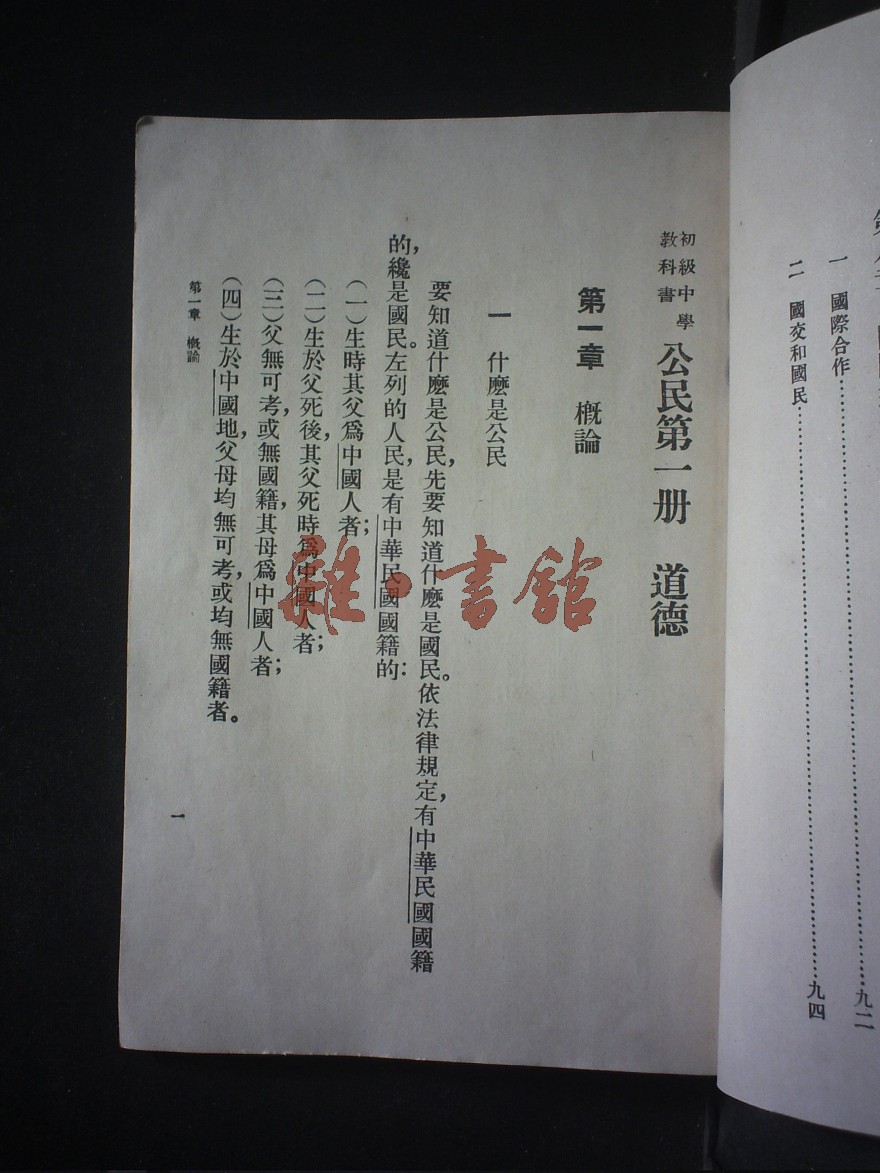 一　國際合作……九二
二　國交和國民……九四
初級中學
教科書
公民第一册　道德
第一章　概論
一　什麽是公民
要知道什麽是公民，先要知道什麽是國民。依法律規定，有中華民國國籍
的，纔是國民。左列的人民，是有中華民國國籍的：
（一）生時其父爲中國人者；
（二）生於父死後，其父死時爲中國人者；
（三）父無可考，或無國籍，其母爲中國人者；
（四）生於中國地，父母均無可考，或均無國籍者。
第一章　概論
一
雜·書館